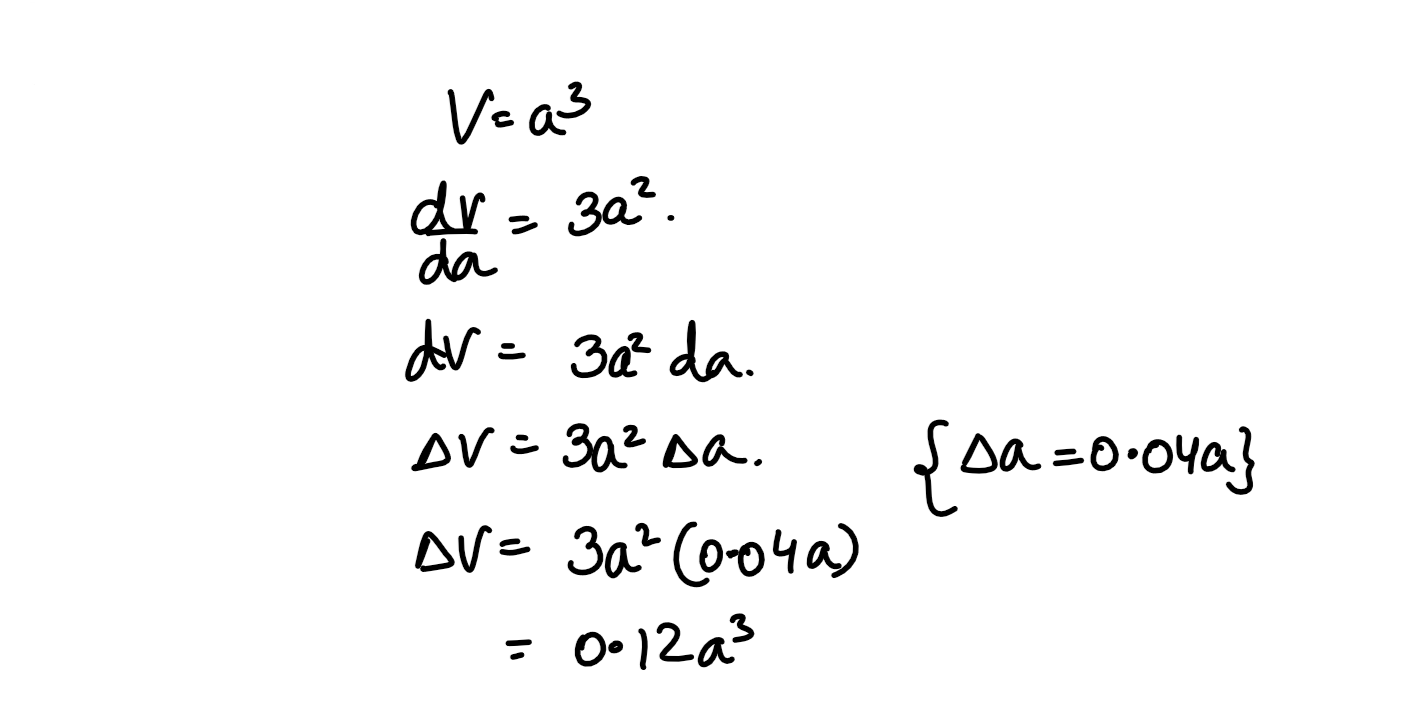 V = a³
dv/da = 3a².
dV = 3a² da.
ΔV = 3a² Δa. {Δa = 0.04a}
ΔV = 3a² (0.04a)
= 0.12a³